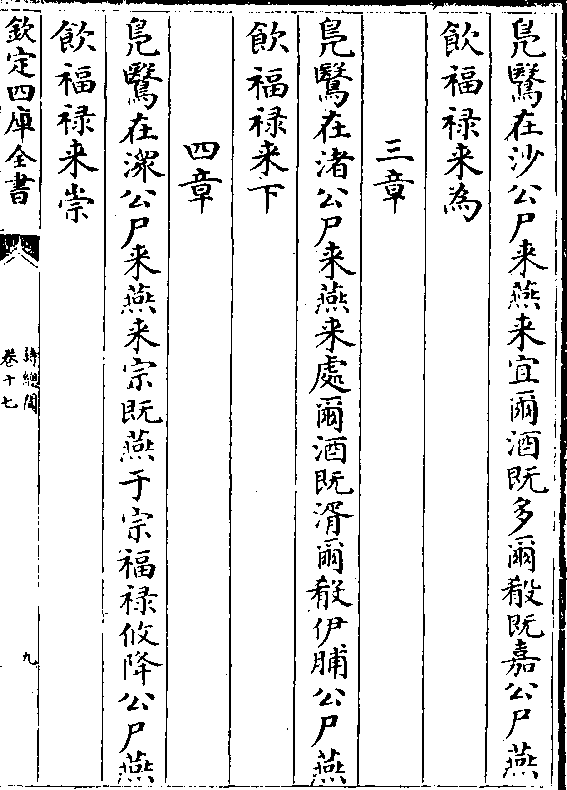 鳧鷖在沙公尸来燕来宜爾酒既多爾殽既嘉公尸燕
飲福禄来為
三章
鳧鷖在渚公尸来燕来處爾酒既湑爾殽伊脯公尸燕
飲福禄来下
四章
鳧鷖在潀公尸来燕来宗既燕于宗福禄攸降公尸燕
飲福禄来崇
欽定四庫全書
詩總聞
卷十七
九